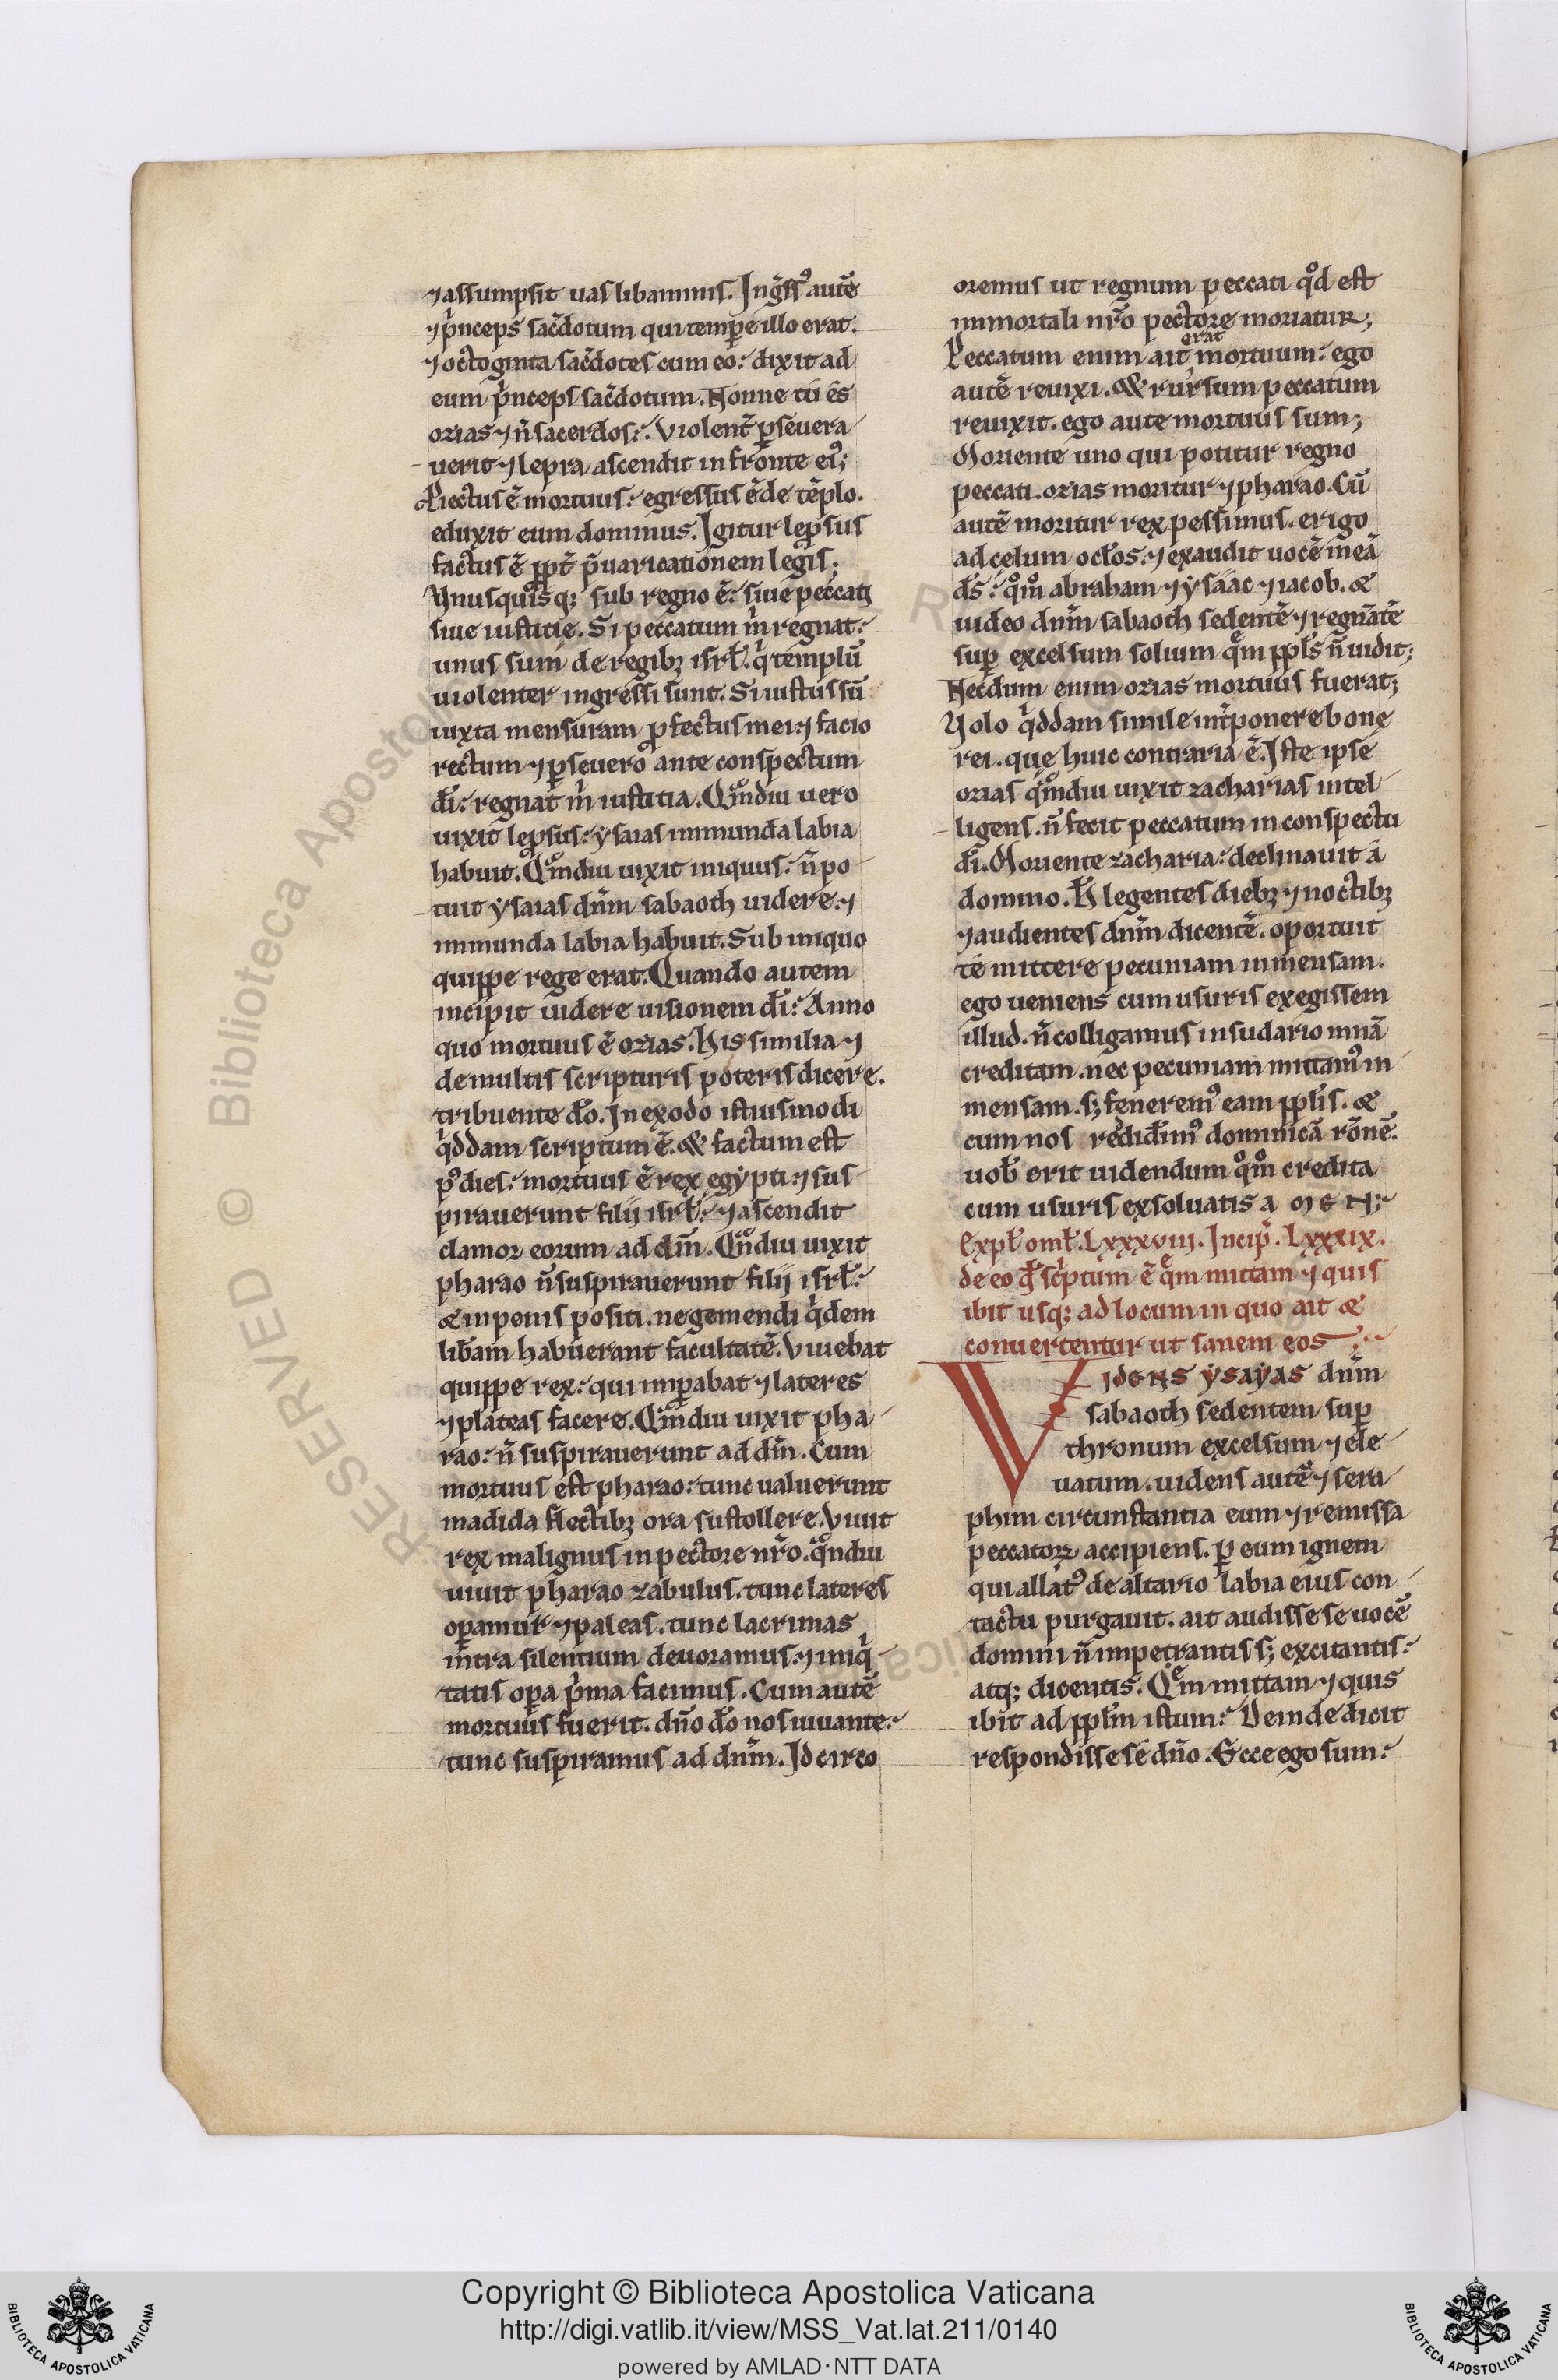 ⁊ assumpsit uas libaminis. Ingss᷒ autē
⁊ p̄nceps sac̄dotum qui temꝑe illo erat.
⁊ octoginta sac̄dotes cum eo. dixit ad
eum p̄nceps sac̄dotum. Nonne tu es
ozias ⁊ n̄ sacerdos. Violent̄ ꝑseuera
uerit ⁊ lepra ascendit in fronte ei᷒;
Eiectus ē mortuus. egressus ē de tēplo.
eduxit eum dominus. Igitur leꝓsus
factus ē ꝓpt̄ p̄uaricationem legis;
Vnusquisq; sub regno ē. siue peccati
siue iustitie. Si peccatum m̄ regnat.
unus sum de regibꝫ isrl̄. q̄ templū
uiolenter ingressi sunt. Si iustus sū
iuxta mensuram ꝓfectus mei. ⁊ facio
rectum ⁊ ꝑseuero ante conspectum
dī. regnat m̄ iustitia. Qͦmdiu uero
uixit leꝓsus. ysaias immunda labia
habuit. Qͦmdiu uixit iniquus. n̄ po
tuit ysaias dn̄m sabaoth uidere. ⁊
immunda labia habuit. Sub iniquo
quippe rege erat. Quando autem
incipit uidere uisionem dī. Anno
quo mortuus ē ozias. His similia ⁊
de multis scripturis poteris dicere.
tribuente dō. In exodo istiusmodi
q̄ddam scriptum ē. & factum est
p᷒ dies. mortuus ē rex egypti. ⁊ sus
pirauerunt filij isrl̄. ⁊ ascendit
clamor eorum ad dm̄. Qͦndiu uixit
pharao n̄ suspirauerunt filij isrl̄.
& in penis positi. ne gemendi q̄dem
lib̄am habuerant facultatē. Viuebat
quippe rex. qui imꝑabat ⁊ lateres
⁊ plateas facere. Qͦmdiu uixit pha
rao. n̄ suspirauerunt ad dm̄. Cum
mortuus est pharao. tunc ualuerunt
madida flectibꝫ ora sustollere. Viuit
rex malignus in pectore nr̄o. qͦndiu
uiuit pharao zabulus. tunc lateres
oꝑamur ⁊ paleas. tunc lacrimas
intra silentium deuoramus. ⁊ iniq̄
tatis oꝑa p̄ma facimus. Cum autē
mortuus fuerit. dn̄o dō nos iuuante.
tunc suspiramus ad dn̄m. Idcirco
oremus ut regnum peccati qͦd est
immortali nr̄o pectore moriatur;
erat
Peccatum enim ait mortuum. ego
autē reuixi. & rursum peccatum
reuixit. ego aute mortuus sum;
Moriente uno qui potitur regno
peccati. ozias moritur ⁊ pharao. Cū
autē moritur rex pessimus. erigo
ad celum oclos. ⁊ exaudit uocē meā
ds̄. qͦm abraham ⁊ ysaac ⁊ iacob. &
uideo dnm̄ sabaoth sedentē ⁊ regnātē
suꝑ excelsum solium quē ppls̄ n̄ uidit;
Necdum enim ozias mortuus fuerat;
Volo q̄ddam simile int̄ponere bone
rei. que huic contraria ē. Iste ipse
ozias qͦmdiu uixit zacharias intel
ligens. n̄ fecit peccatum in conspectu
dī. Moriente zacharia. declinauit a
domino. H̄ legentes diebꝫ ⁊ noctibꝫ
⁊ audientes dnm̄ dicentē. oportuit
te mittere pecuniam in mensam.
ego ueniens cum usuris exegissem
illud. n̄ colligamus in sudario mnā
creditam. nec pecuniam mittam᷒ in
mensam. sꝫ fenerem᷒ eam ppl̄is. &
cum nos redidim᷒ dominicā rōnē.
uob̄ erit uidendum qͦm credita
cum usuris exsoluatis AMEN;
Expl̄ omł. Lxxxviii. Incip̄. Lxxxix.
de eo qd̄ sc̄ptum ē quē mittam ⁊ quis
ibit usq; ad locum in quo ait &
conuertentur ut sanem eos;
VIDENS YSAYAS dn̄m
sabaoth sedentem suꝑ
thronum excelsum ⁊ ele
uatum. uidens autē ⁊ sera
phim circunstantia eum ⁊ remissa
peccatoꝝ accipiens. ꝑ eum ignem
qui allat᷒ de altario labia eius con
tactu purgauit. ait audisse se uocē
domini n̄ impetrantis sꝫ excitantis.
atq; dicentis. Quē mittam ⁊ quis
ibit ad ppl̄m istum. Deinde dicit
respondisse se dn̄o. Ecce ego sum.
Copyright © Biblioteca Apostolica Vaticana
http://digi.vatlib.it/view/MSS_Vat.lat.211/0140
powered by AMLAD·NTT DATA
BIBLIOTECA APOSTOLICA VATICANA
BIBLIOTECA APOSTOLICA VATICANA